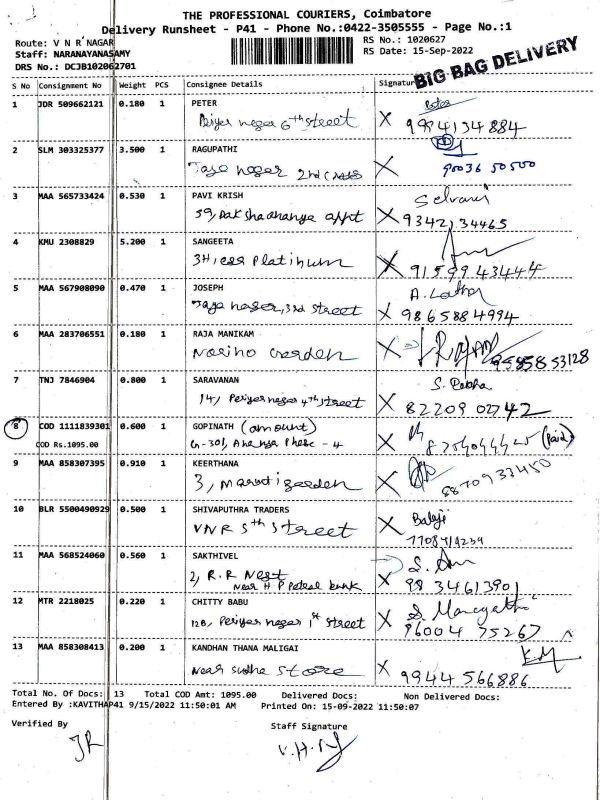 THE PROFESSIONAL COURIERS, Coimbatore
Delivery Runsheet - P41 - Phone No.:0422-3505555 - Page No.:1
Route: V N R NAGAR
RS No.: 1020627
Staff: NARANAYANASAMY
RS Date: 15-Sep-2022
DRS No.: DCJB102062701
BIG BAG DELIVERY
S No Consignment No Weight PCS Consignee Details Signature
1 JDR 509662121 0.180 1 PETER
Periyar nagar 6th street X 9994134884
2 SLM 303325377 3.500 1 RAGUPATHI
nagar 2nd X 90036 50500
3 MAA 565733424 0.530 1 PAVI KRISH Selvani
59, appt X 9342134465
4 KMU 2308829 5.200 1 SANGEETA
Platinum X 9159943444
5 MAA 567908090 0.470 1 JOSEPH A. Latha
nagar, 3rd street X 9865884994
6 MAA 283706551 0.180 1 RAJA MANIKAM
Garden X 9585853128
7 TNJ 7846904 0.800 1 SARAVANAN S. Prabha
14, Periyar nagar 4th street X 82209 02742
8 COD 1111839301 0.600 1 GOPINATH (amount)
COD Rs.1095.00 G-301, Ananya Phase - 4 X (Paid)
9 MAA 858307395 0.910 1 KEERTHANA
3, Maruti garden X 8870933450
10 BLR 5500490929 0.500 1 SHIVAPUTHRA TRADERS Balaji
VNR 5th Street X
11 MAA 568524060 0.560 1 SAKTHIVEL
2, R.R Nest X 9834613901
Near H P Petrol bunk
12 MTR 2218025 0.220 1 CHITTY BABU
12B, Periyar nagar 1st street X 96004 75267
13 MAA 858308413 0.200 1 KANDHAN THANA MALIGAI KM
Near sudha store X 9944 566886
Total No. Of Docs: 13 Total COD Amt: 1095.00 Delivered Docs: Non Delivered Docs:
Entered By :KAVITHAP41 9/15/2022 11:50:01 AM Printed On: 15-09-2022 11:50:07
Verified By Staff Signature